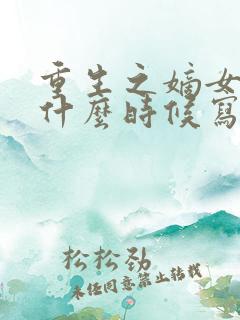 重生之嫡女
什麼時候寫
松松劲
未经同意禁止转载